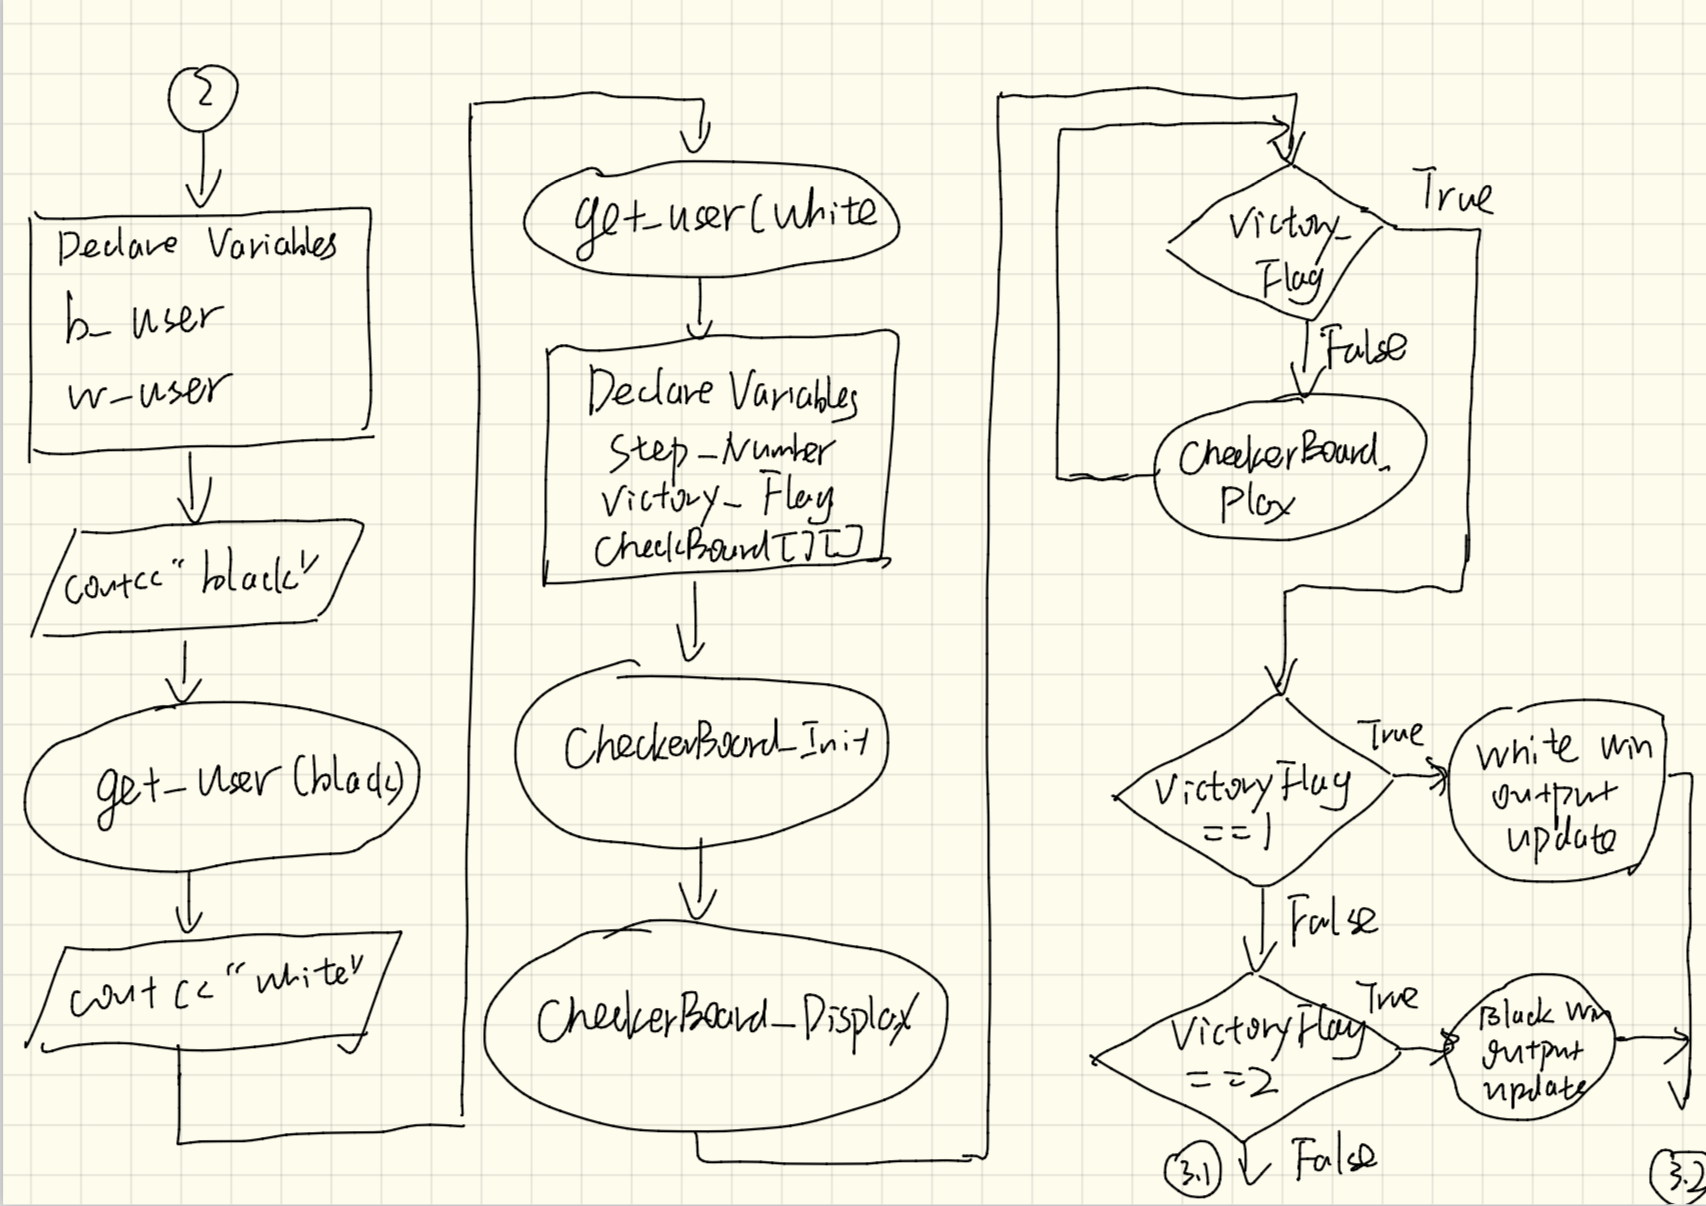 2
Declare Variables
b_user
w_user
cout<<"black"
get_user(black)
cout<<"white"
get_user(white
Declare Variables
Step_Number
Victory_Flag
CheckBoard[][]
CheckerBoard_Init
CheckerBoard_Display
Victory_
Flag
True
False
CheckerBoard_
Play
VictoryFlag
==1
True
white win
output
update
False
VictoryFlag
==2
True
Black win
output
update
False
3.1
3.2